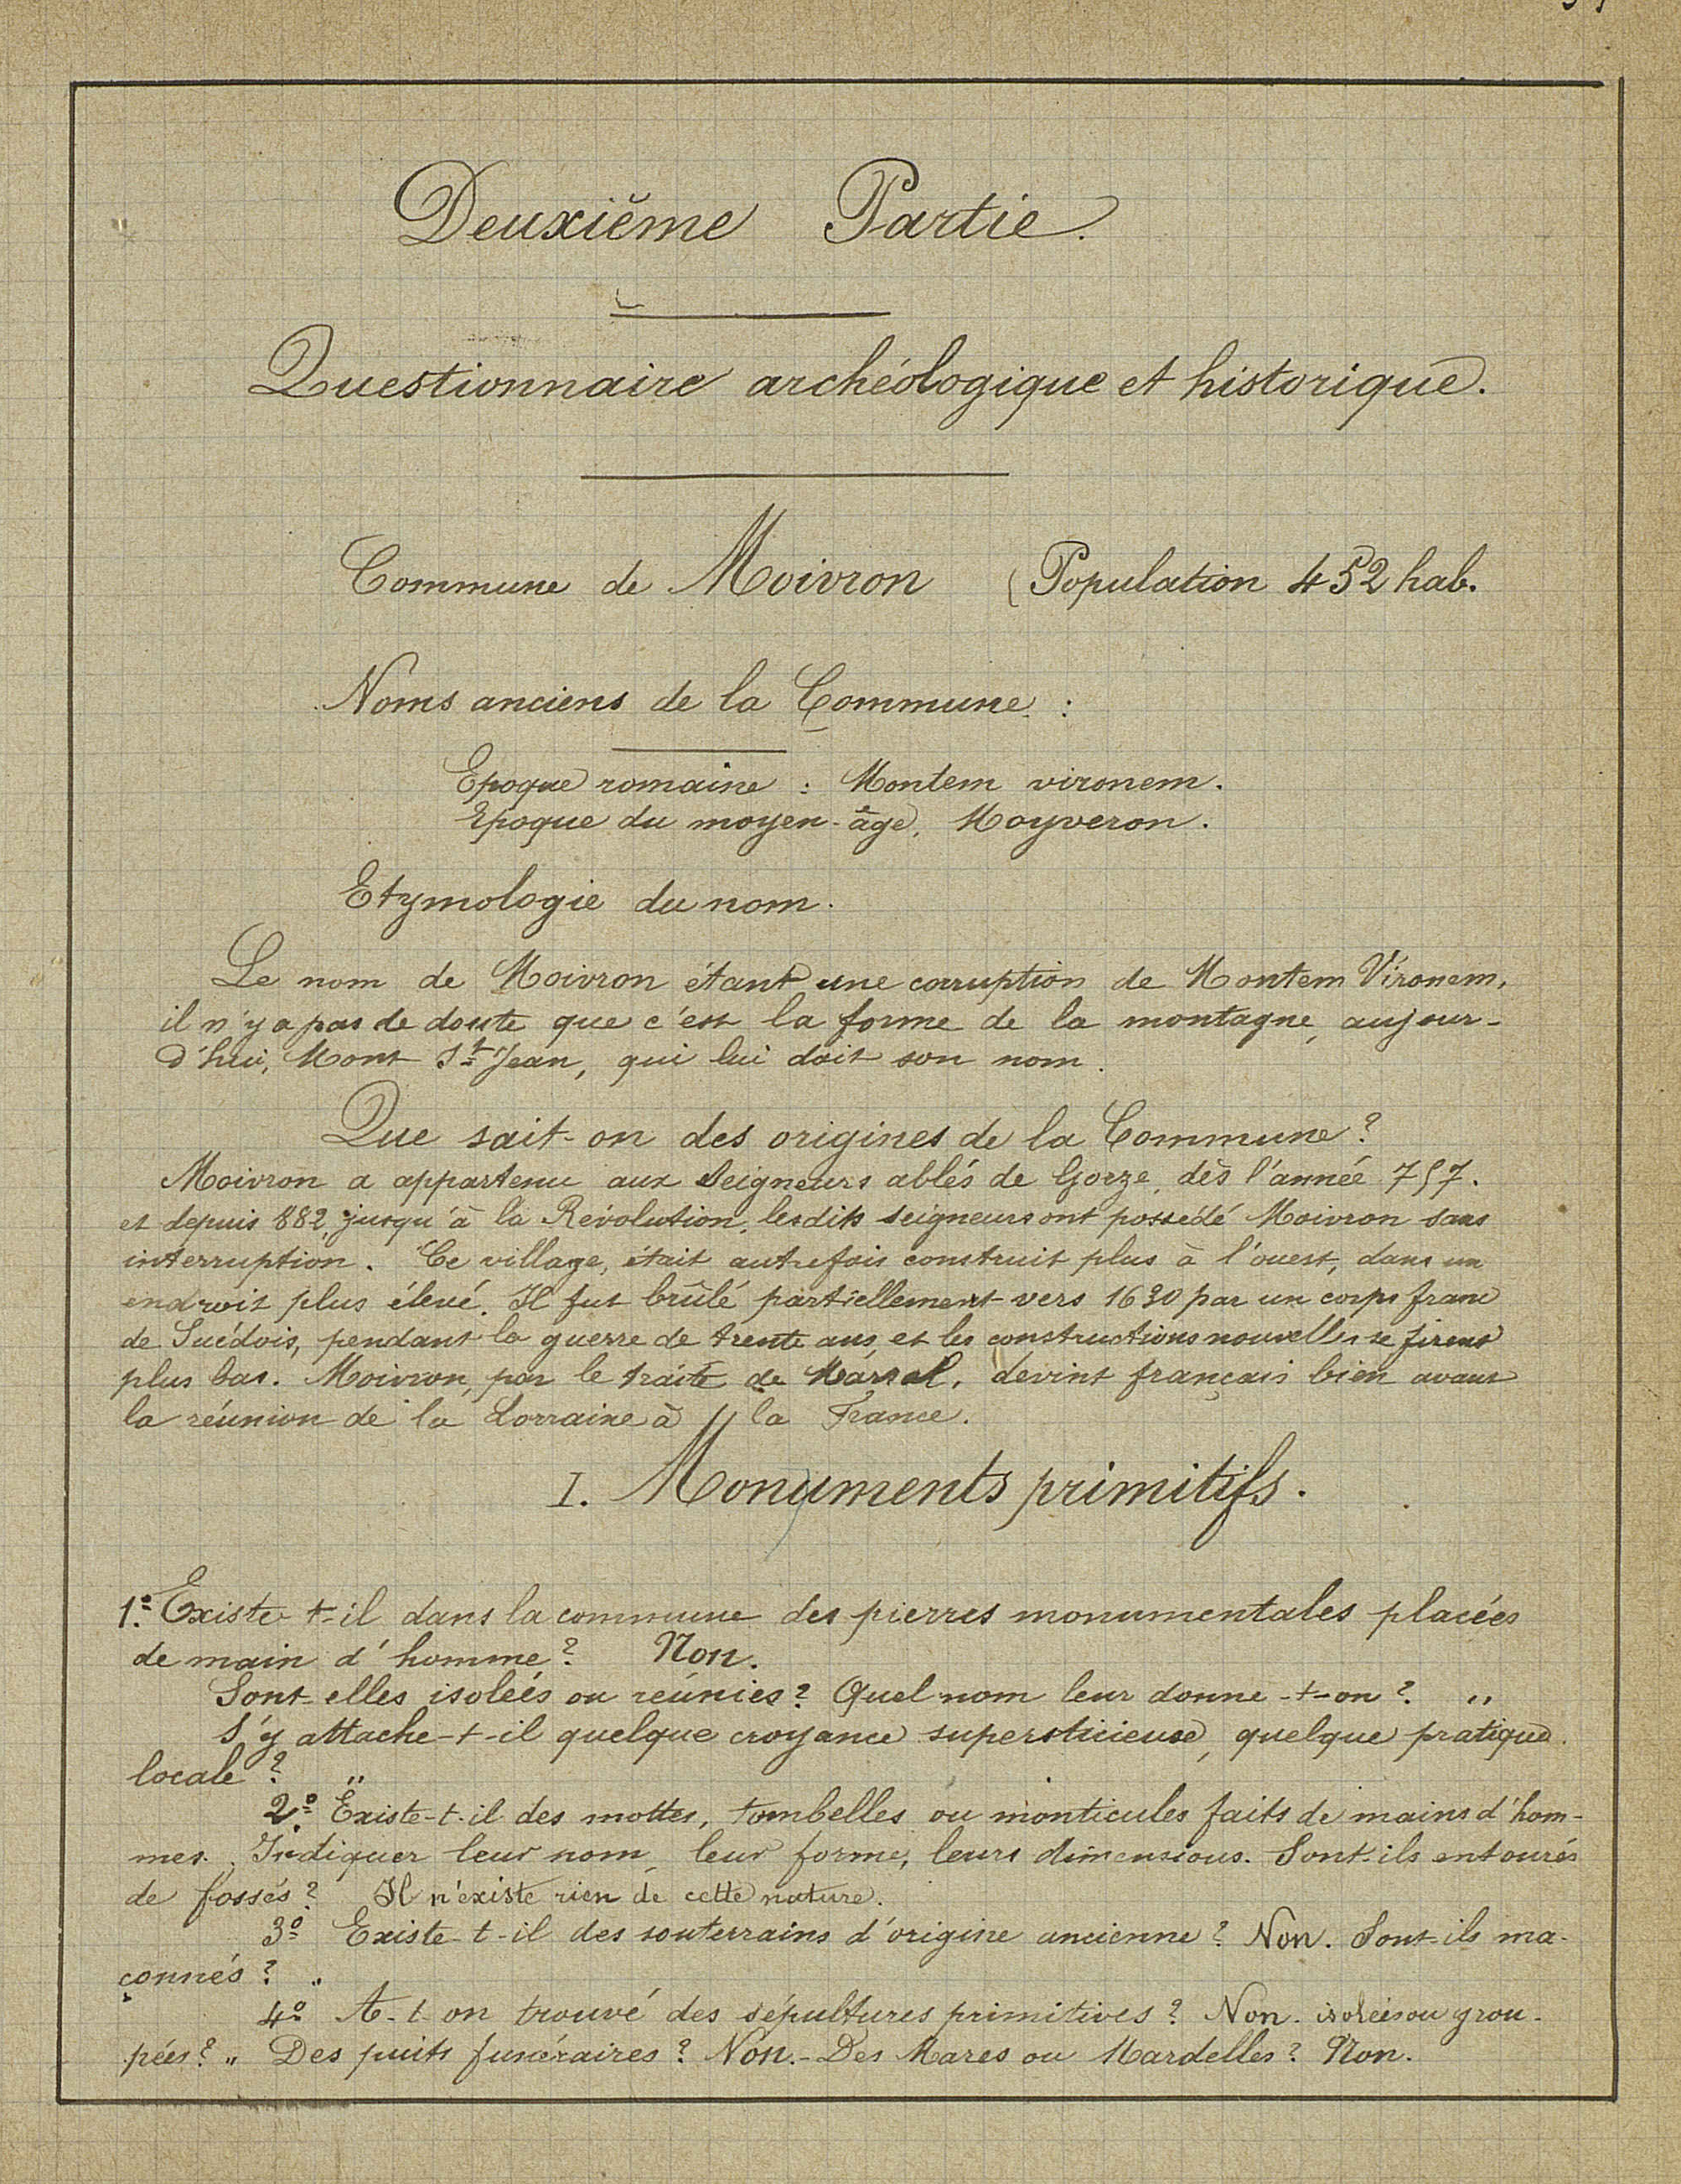 Deuxième Partie.
Questionnaire archéologique et historique.
Commune de Moivron (Population 452 hab.
Noms anciens de la Commune :
Epoque romaine : Montem vironem.
Epoque du moyen-âge, Moyveron.
Etymologie du nom.
Le nom de Moivron étant une corruption de Montem Vironem,
il n'y a pas de doute que c'est la forme de la montagne, aujour-
d'hui, Mont St Jean, qui lui doit son nom.
Que sait-on des origines de la Commune ?
Moivron a appartenu aux Seigneurs abbés de Gorze, dès l'année 757.
et depuis 882, jusqu'à la Révolution, lesdits seigneurs ont possédé Moivron sans
interruption. Ce village, était autrefois construit plus à l'ouest, dans un
endroit plus élevé. Il fut brûlé partiellement vers 1630 par un corps franc
de Suédois, pendant la guerre de trente ans, et les constructions nouvelles se firent
plus bas. Moivron, par le traité de Marsal, devint français bien avant
la réunion de la Lorraine à la France.
I. Monuments primitifs.
1.º Existe-t-il dans la commune des pierres monumentales placées
de main d'homme ? Non.
Sont-elles isolées ou réunies ? Quel nom leur donne-t-on ? "
S'y attache-t-il quelque croyance supersticieuse, quelque pratique
locale ? "
2º Existe-t-il des mottes, tombelles ou monticules faits de mains d'hom-
mes. Indiquer leur nom, leur forme, leurs dimensions. Sont-ils entourés
de fossés ? Il n'existe rien de cette nature.
3º Existe-t-il des souterrains d'origine ancienne ? Non. Sont-ils ma-
çonnés ? "
4º A-t-on trouvé des sépultures primitives ? Non. isolées ou grou-
pées ? " Des puits funéraires ? Non. - Des Mares ou Mardelles ? Non.